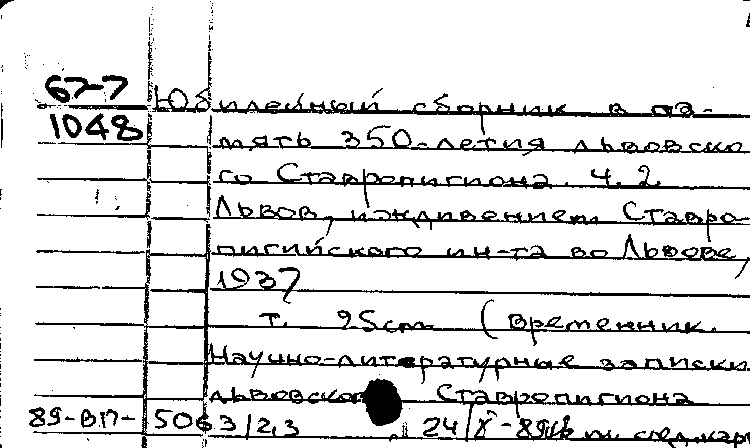 67-7 Юбилейный сборник в па-
1048 мять 350-летия львовско
го Ставропигиона. Ч. 2
Львов, иждивением Ставро-
пигийского ин-та во Львове,
1937
т. 25см (Временник.
Научно-литературные записки
львовского Ставропигиона
89-ВП- 5063/2,3 24/X-89